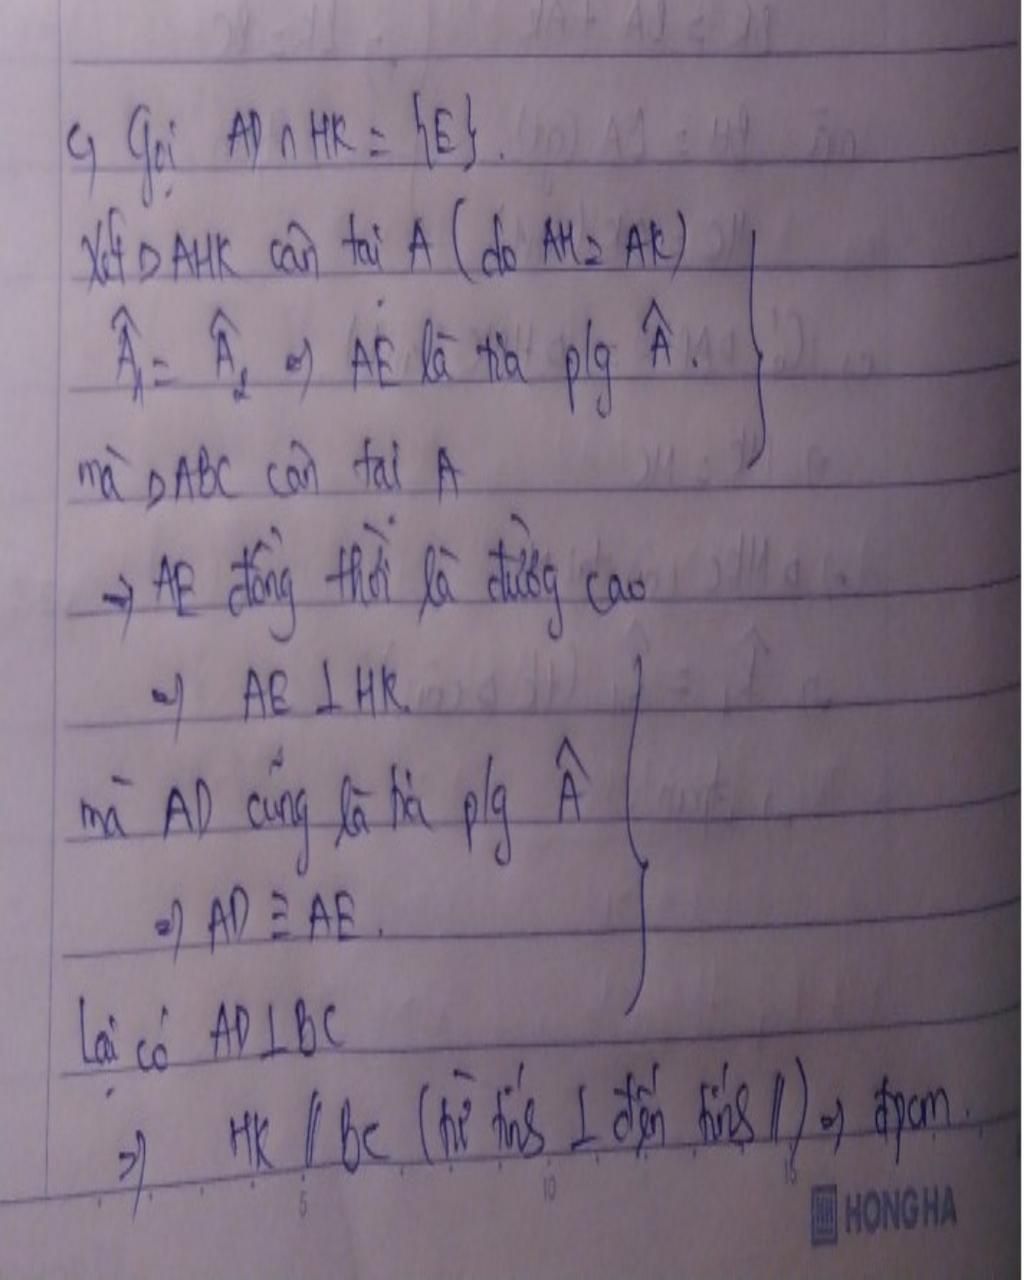 c, Gọi AD ∩ HK = {E}.
Xét ▷ AHK cân tại A (do AH = AK)
Â₁ = Â₂ ⇒ AE là tia p/g Â.
mà ▷ ABC cân tại A
⇒ AE đồng thời là đường cao
⇒ AE ⊥ HK.
mà AD cũng là tia p/g Â
⇒ AD ≡ AE.
Lại có AD ⊥ BC
⇒ HK // BC (từ tính ⊥ đến tính //) ⇒ đpcm.
5 10 15
HONG HA